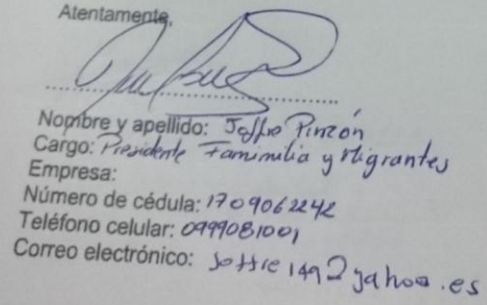 Atentamente,
Nombre y apellido: Joffre Pinzón
Cargo: Presidente Famimilia y Migrantes
Empresa:
Número de cédula: 1709062242
Teléfono celular: 0999081001
Correo electrónico: yahoo.es